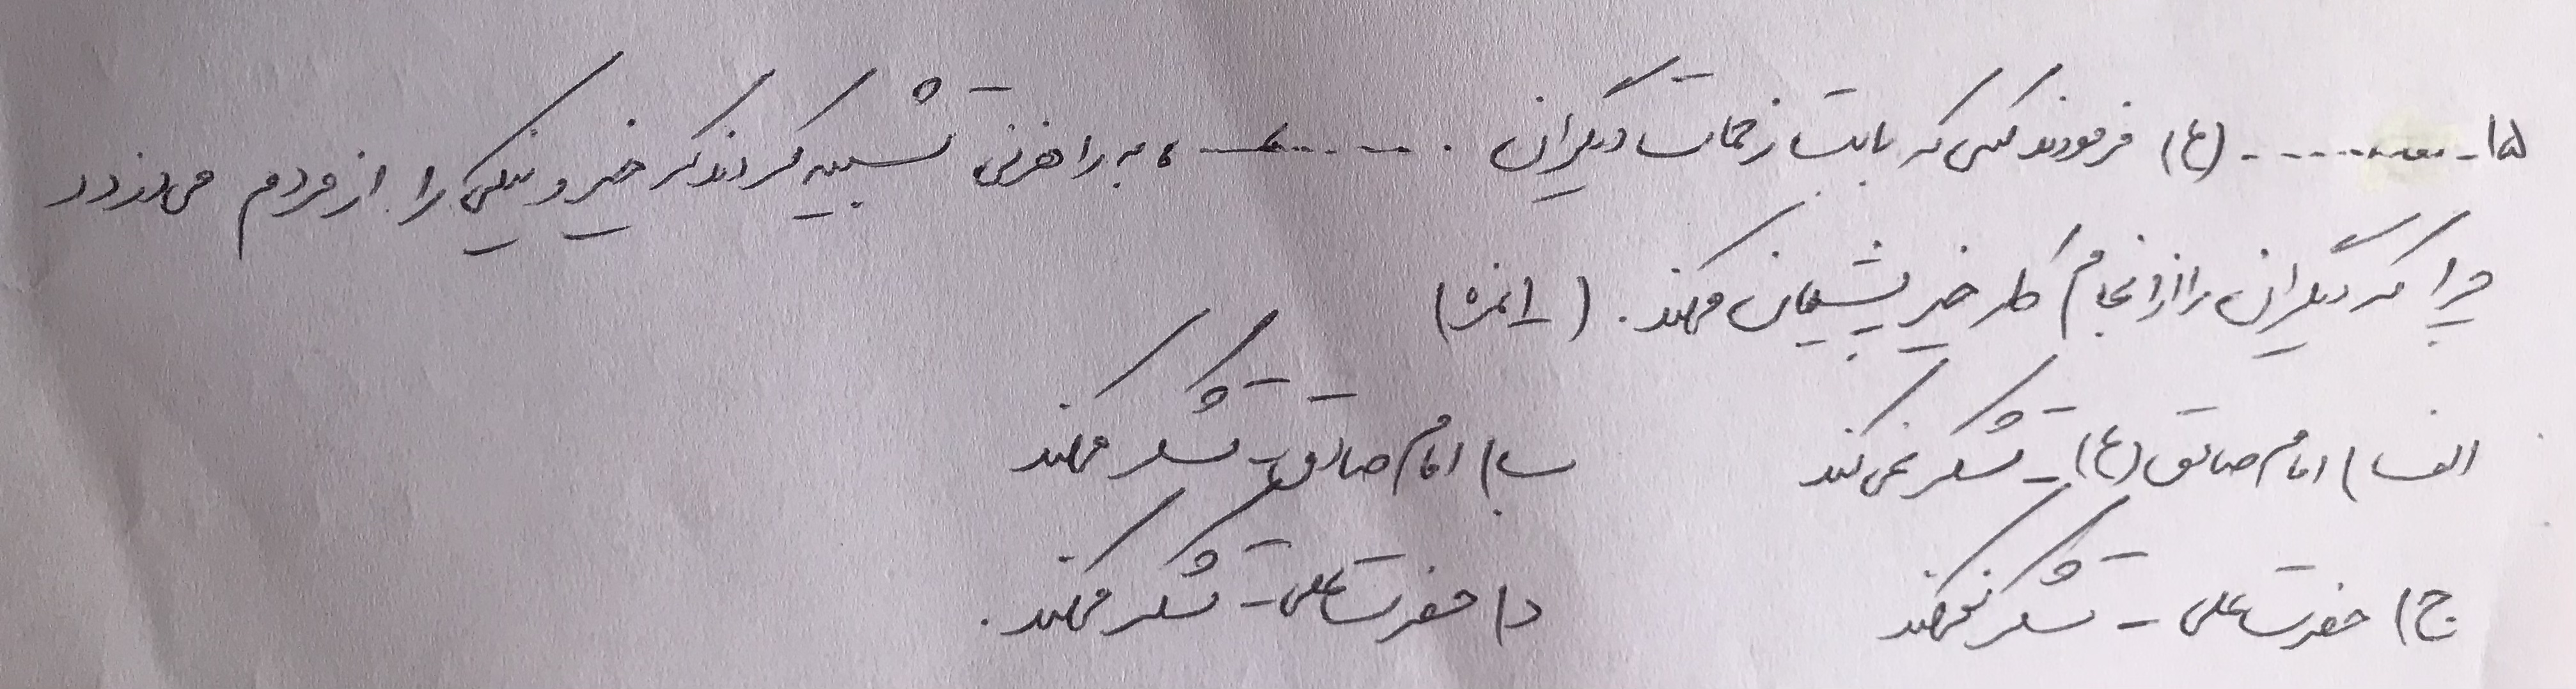 ۱۵- ............ (ع) فرمودند کسی که بابت زحمات دیگران ............، به راهزنی تشبیه کردند که خیر و نیکی را از مردم می‌دزدد
چرا که دیگران را از انجام کار خیر پشیمان میکند. (۱ نمره)
الف) امام صادق (ع) - تشکر نمی کند ب) امام صادق - تشکر میکند
ج) حضرت علی - تشکر نمیکند د) حضرت علی - تشکر میکند.